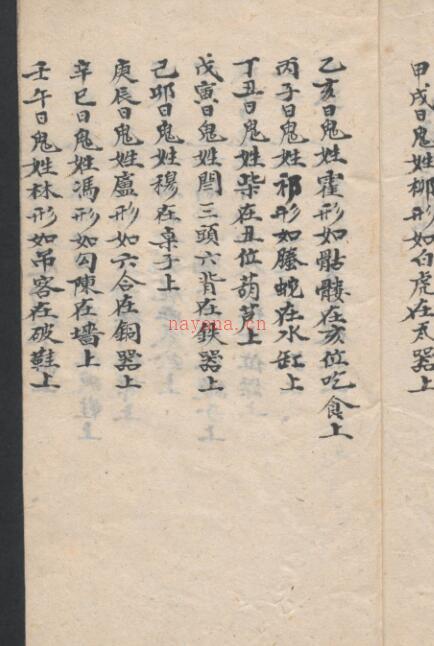 甲戌日鬼姓柳形如白虎在瓦器上
乙亥日鬼姓霍形如骷髏在亥位吃食上
丙子日鬼姓祁形如螣蛇在水缸上
丁丑日鬼姓柴在丑位葫芦上
戊寅日鬼姓閆三頭六背在鉄器上
己卯日鬼姓穆在桌子上
庚辰日鬼姓盧形如六合在銅器上
辛巳日鬼姓馮形如勾陳在墻上
壬午日鬼姓林形如吊客在破鞋上
nayana.cn